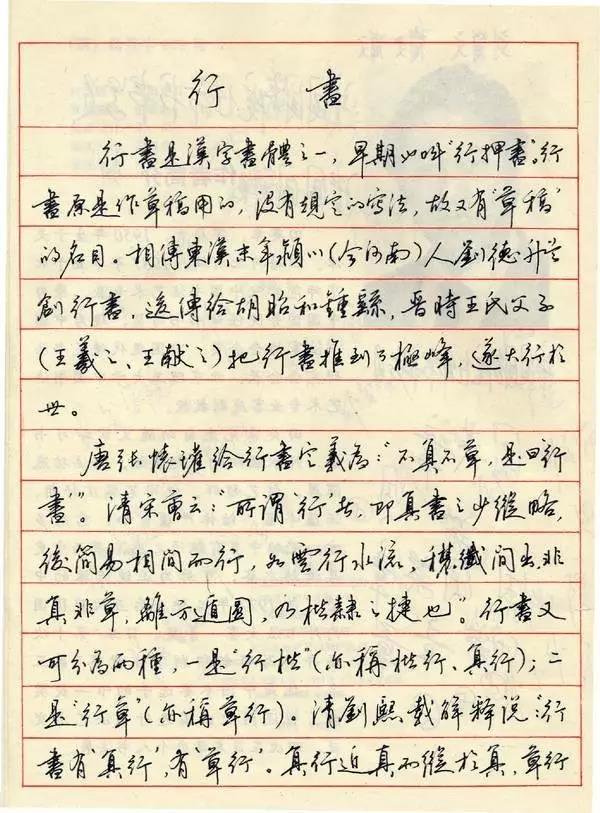 行 書
行書是漢字書體之一，早期也叫“行押書”。行
書原是作草稿用的，沒有規定的寫法，故又有“草稿”
的名目。相傳東漢末年潁川（今河南）人劉德升首
創行書，後傳給胡昭和鍾繇，晋時王氏父子
（王羲之、王献之）把行書推到了極峰，遂大行於
世。
唐張懷瓘給行書定義為：“不真不草，是曰行
書”。清宋曹云：“所謂‘行’者，即真書之少縱略，
後簡易相間而行，如雲行水流，穠纖間出，非
真非草，離方遁圓，乃楷隸之捷也”。行書又
可分為兩種，一是“行楷”（亦稱楷行、真行）；二
是“行草”（亦稱草行）。清劉熙載解释说：“行
書有‘真行’，有‘草行’”。真行近真而縱於真，草行